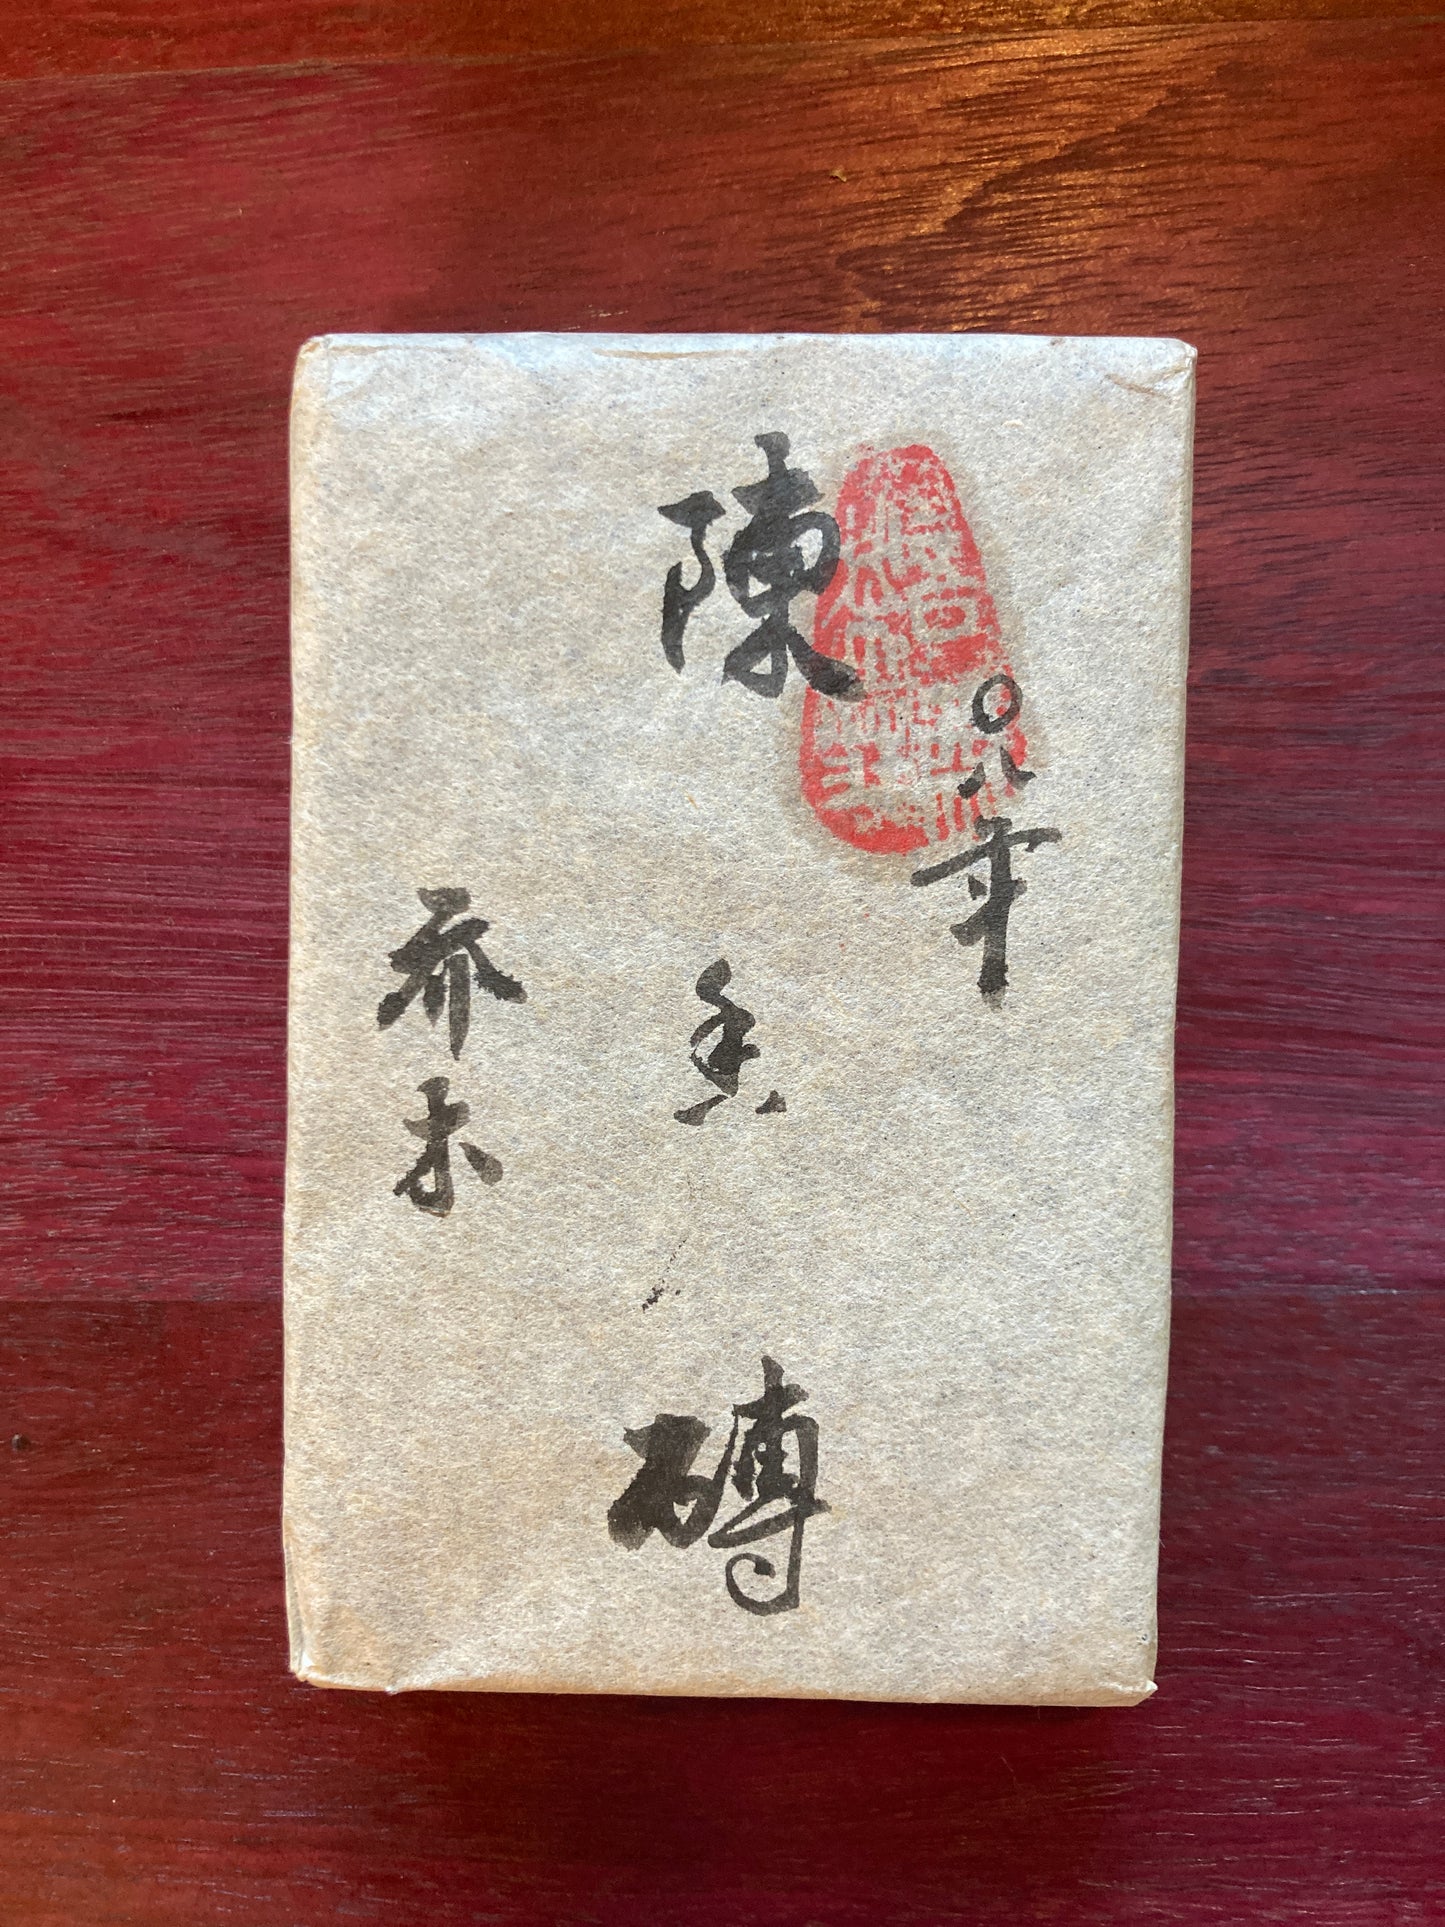 〇八年
陳香磚
乔木